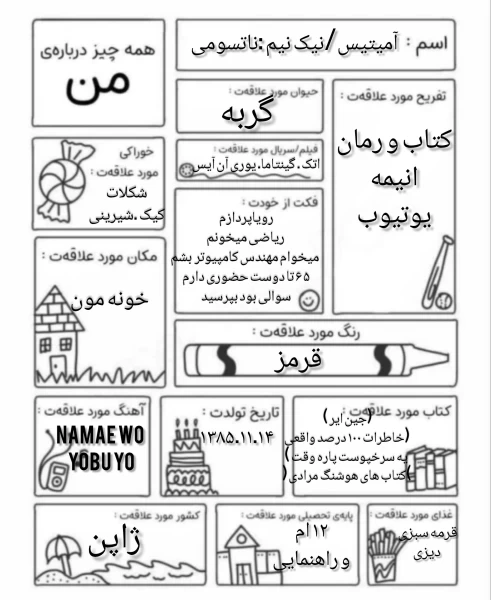 همه چیز درباره‌ی
من
اسم : آمیتیس / نیک نیم : ناتسومی
حیوان مورد علاقه‌ت :
گربه
تفریح مورد علاقه‌ت :
کتاب و رمان
انیمه
یوتیوب
خوراکی
مورد علاقه‌ت :
شکلات
کیک .شیرینی
فیلم/سریال مورد علاقه‌ت :
اتک. گینتاما. یوری آن آیس
فکت از خودت :
رویاپردازم
ریاضی میخونم
میخوام مهندس کامپیوتر بشم
۶۵تا دوست حضوری دارم
سوالی بود بپرسید
مکان مورد علاقه‌ت :
خونه مون
رنگ مورد علاقه‌ت :
قرمز
آهنگ مورد علاقه‌ت :
NAMAE WO
YOBU YO
تاریخ تولدت :
۱۳۸۵.۱۱.۱۴
کتاب مورد علاقه‌ت :
(جین ایر)
(خاطرات ۱۰۰درصد واقعی
یه سرخپوست پاره وقت)
(کتاب های هوشنگ مرادی)
کشور مورد علاقه‌ت :
ژاپن
پایه‌ی تحصیلی مورد علاقه‌ت :
۱۲ ام
و راهنمایی
غذای مورد علاقه‌ت :
قرمه سبزی
دیزی